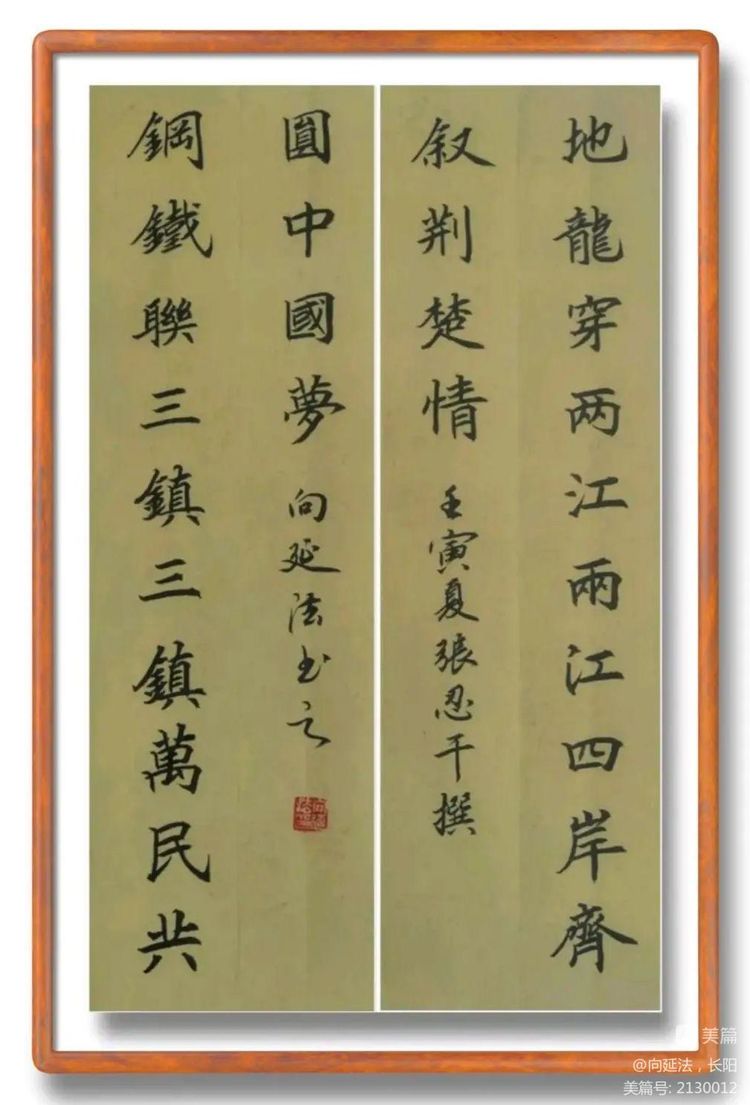 地龍穿两江兩江四岸齊
叙荆楚情
壬寅夏張忍干撰
鋼鐵聯三鎮三鎮萬民共
圓中國夢
向延法书之
美篇
@向延法，长阳
美篇号: 2130012